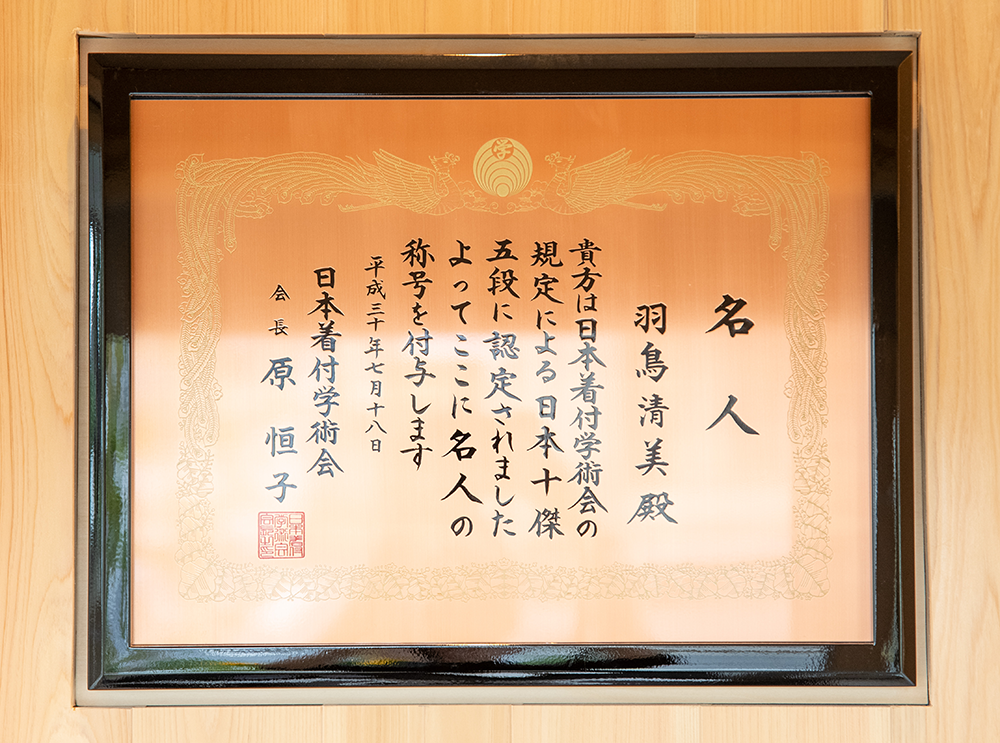 学
名人
羽鳥清美殿
貴方は日本着付学術会の
規定による日本十傑
五段に認定されました
よってここに名人の
称号を付与します
平成三十年七月十八日
日本着付学術会
会長 原恒子